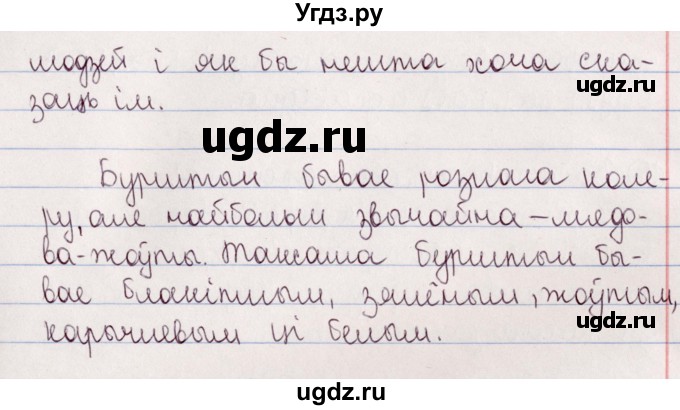 Угдз.ру
людзей і як бы нешта хоча ска-
заць ім.
ugdz.ru
Бурштын бывае рознага коле-
ру, але найбольш звычайна - мядо-
ва-жоўты. Таксама бурштын бы-
вае блакітным, зялёным, жоўтым,
карычневым ці белым.
ugdz.ru
ugdz.ru
ugdz.ru
ugdz.ru